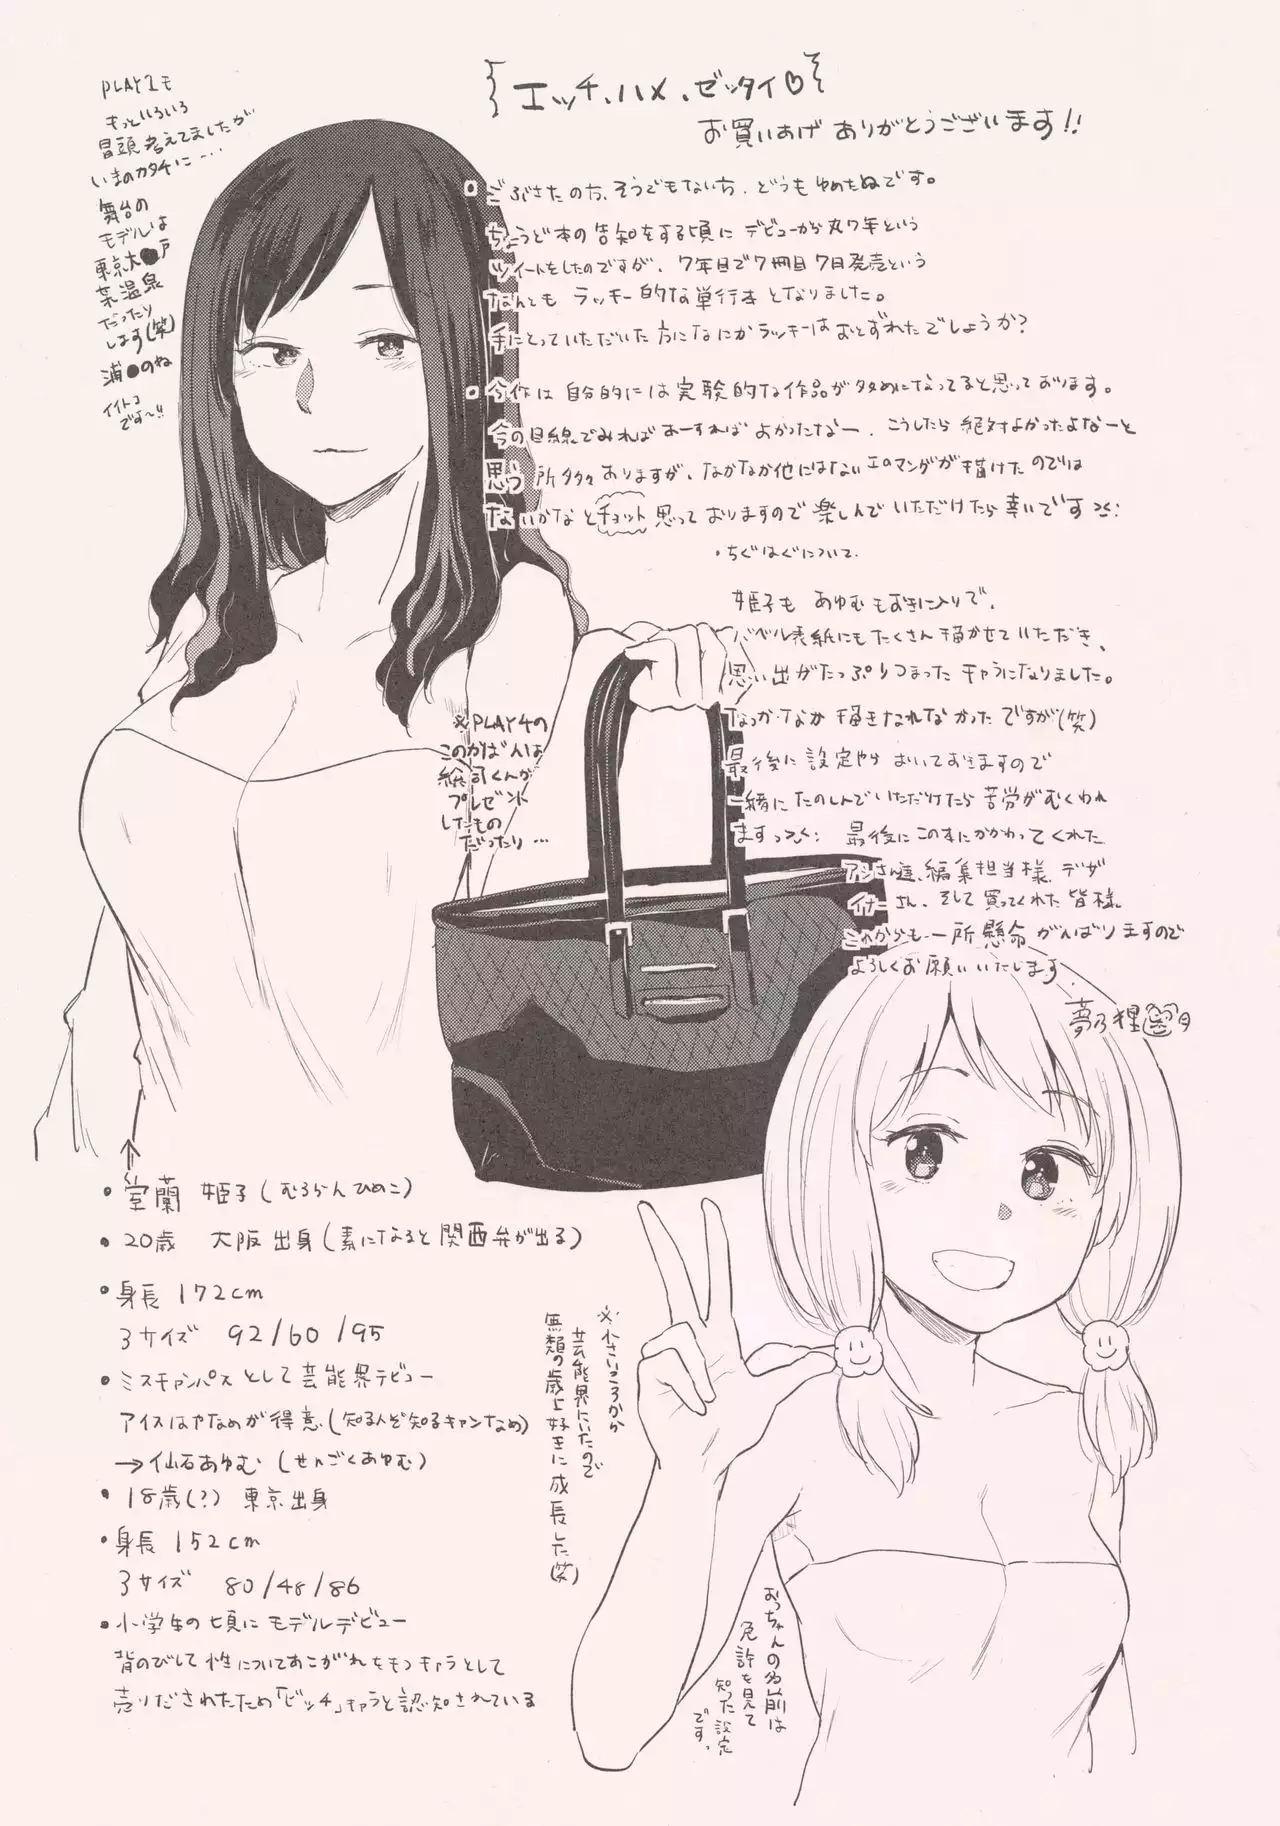 エッチ、ハメ、ゼッタイ♡
お買いあげ ありがとうございます!!
PLAY1も
もっといろいろ
冒頭考えてましたが
いまのカタチに…
舞台の
モデルは
東京大●戸
温泉
だったり
します(笑)
浦●のね
イイトコ
です〜!!
ごぶさたの方、そうでもない方、どうもゆめたぬです。
ちょうど本の告知をする頃に デビューから丸7年という
ツイートをしたのですが、7年目で7冊目7日発売という
なんとも ラッキー的な単行本となりました。
手にとっていただいた方になにかラッキーはおとずれたでしょうか?
今作は自分的には実験的な作品が多めになってると思っております。
今の目線でみればあーすればよかったなー、こうしたら絶対よかったよなーと
思う所多々ありますが、なかなか他にはないエロマンガが描けたのでは
ないかなとチョット思っておりますので楽しんでいただけたら幸いです
・ちぐはぐについて
姫子も あゆむもお気に入りで、
バベル表紙にもたくさん描かせていただき、
思い出がたっぷりつまったキャラになりました。
なっかなか描きなれなかったですが(笑)
最後に設定やら おいておきますので
一緒にたのしんでいただけたら苦労がむくわれ
ますっ 最後にこの本にかかわってくれた
アシさん達、編集担当様、デザ
イナーさん、そして買ってくれた皆様
これからも一所懸命がんばりますので
よろしくお願いいたします。
夢乃狸
※PLAY4の
このかばんは
くんが
プレゼント
したもの
だったり…
・室蘭 姫子(むろらんひめこ)
・20歳 大阪出身(素になると関西弁が出る)
・身長 172cm
3サイズ 92/60/95
・ミスキャンパスとして芸能界デビュー
アイスはやなめが得意(知る人ぞ知るキャンなめ)
→仙石あゆむ(せんごくあゆむ)
・18歳(?) 東京出身
・身長 152cm
3サイズ 80/48/86
・小学生の頃にモデルデビュー
背のびして性についてあこがれをもつキャラとして
売りだされたため「ビッチ」キャラと認知されている
※小さいころから
芸能界にいたので
無類の歳上好きに成長した(笑)
おっちゃんの名前は
免許を見て
知った設定
です。